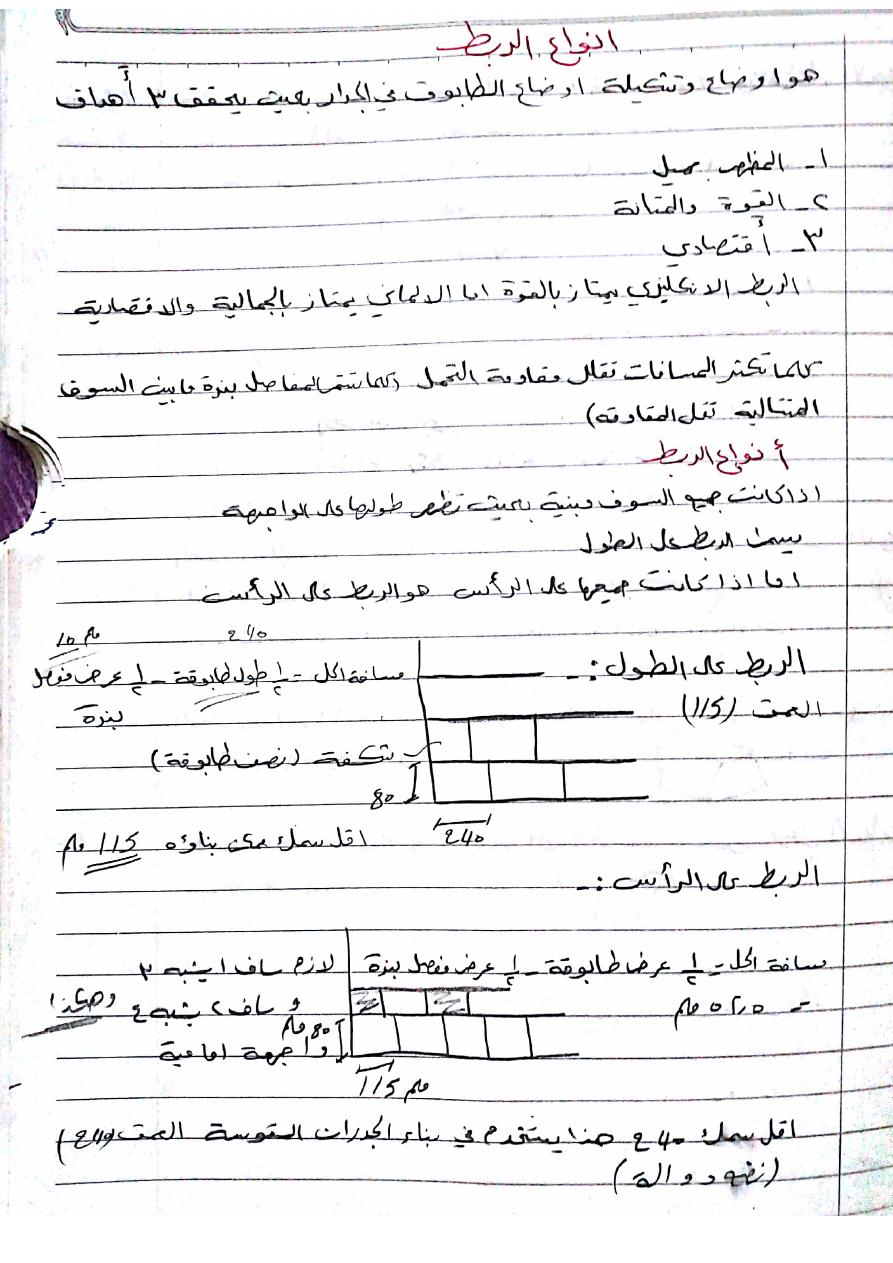 انواع الربط
هو اوضاع وتشكيلة اوضاع الطابوق في الجدار بحيث يحقق ٣ أهداف
١- المظهر جميل
٢- القوة والمتانة
٣- أقتصادي
الربط الانكليزي يمتاز بالقوة اما الالماني يمتاز بالجمالية والاقتصادية
كلما تكثر المسافات تقلل مقاومة التحمل (كلما تستمر المفاصل بنزة مابين السوف
المتتالية تقل المقاومة)
أنواع الربط
اذا كانت جميع السوف مبنية بحيث تظهر طولها على الواجهة
يسمى الربط على الطول
اما اذا كانت جميعها على الرأس هو الربط على الرأس
الربط على الطول :-
مسافة الحل = ½ طول طابوقة - ½ عرض مفصل
بنزة
٢٤٠
١٠ ملم
العمق (115)
شكفة (نصف طابوقة)
80
240
اقل سمك ممكن بناؤه 115 ملم
الربط على الرأس :-
مسافة الحل = ½ عرض طابوقة - ½ عرض مفصل بنزة
= ٥٢٫٥ ملم
لازم ساف ١ يشبه ٣
و ساف ٢ يشبه ٤ وهكذا
واجهة امامية
80 ملم
115 ملم
اقل سمك ٢٤٠ هذا يستخدم في بناء الجدران المقوسة العمق (240)